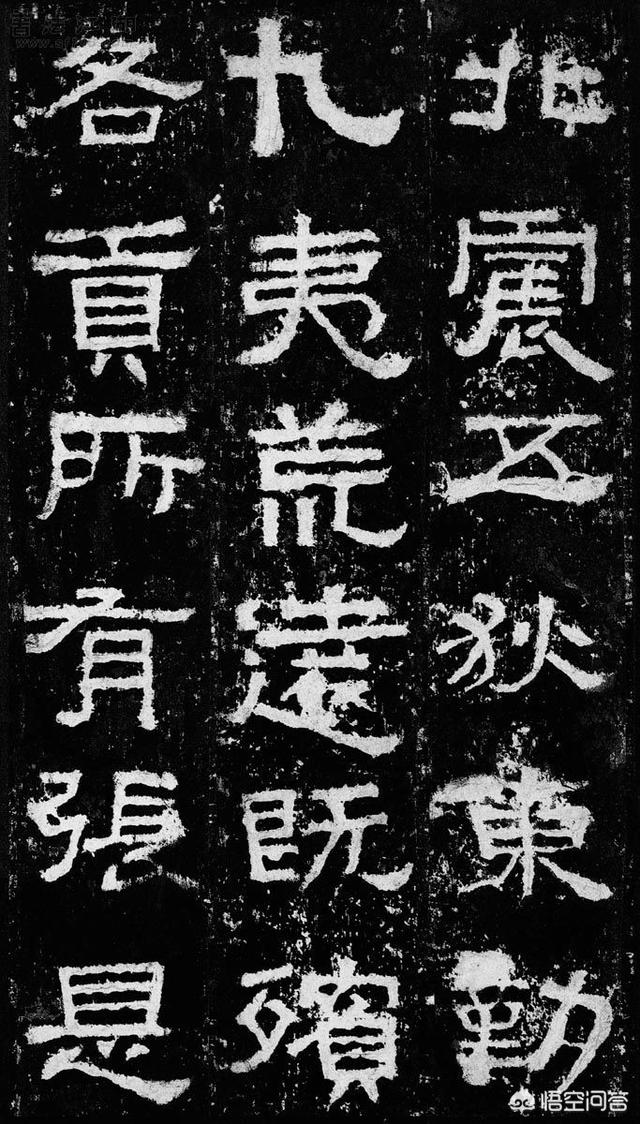 北震五狄東勤
九夷荒遠既殯
各貢所有張是
悟空问答